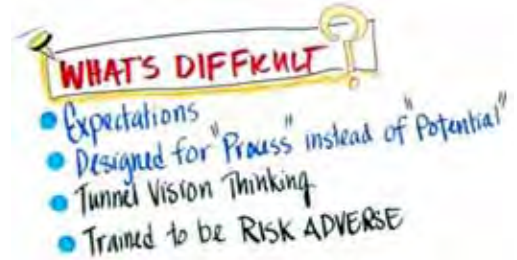 WHAT'S DIFFICULT ?
Expectations
Designed for "Process" instead of "Potential"
Tunnel Vision Thinking
Trained to be RISK ADVERSE